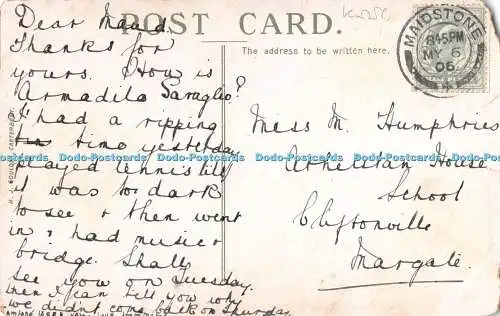 POST CARD.
The address to be written here.
MAIDSTONE
8.45 PM
MY 6
06
Dear Maud
Thanks for
yours. How is
Armadila Saraglio?
I had a ripping
time yesterday
played tennis till
it was to dark
to see & then went
in & had music &
bridge. Shall
see you on Tuesday.
then I can tell you why
we didnt come back on Thursday
Miss M. Humphries
House
School
Cliftonville
Margate.
Dodo-Postcards Dodo-Postcards Dodo-Postcards Dodo-Postcards Dodo-Postcards Dodo-Postcards